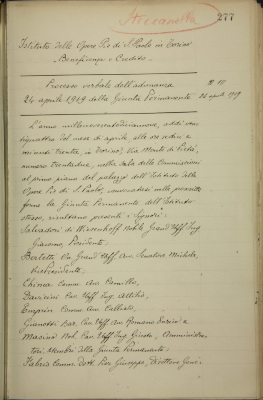 Stoccanella
277
Istituto delle Opere Pie di S. Paolo in Torino
Beneficenza e Credito
Processo verbale dell'adunanza
24 aprile 1919 della Giunta Permanente
24 aprile 1919
L'anno millenovecentodiciannove, addì ventiquattro del mese di aprile alle ore sedici e
minuti trenta, in Torino, Via Monte di Pietà,
numero trentadue, nella sala delle Commissioni
al primo piano del palazzo dell'Istituto delle
Opere Pie di S. Paolo, convocatasi nelle prescritte
forme la Giunta Permanente dell'Istituto
stesso, risultano presenti i Signori:
Salvadori di Wiesenhoff Nob. Grand'Uff. Ing.
Giacomo, Presidente
Bertetti Grand'Uff. Avv. Senatore Michele,
Vice Presidente
Comm. Avv. Camillo,
Cav. Uff. Ing. Attilio,
Comm. Avv.
Gianotti Bar. Cav. Uff. Avv. Romano
Nob. Cav. Uff. Ing. Guido, Amministra-
tori, Membri della Giunta Permanente.
Fabris Comm. Dott. Giuseppe, Direttore Gene-